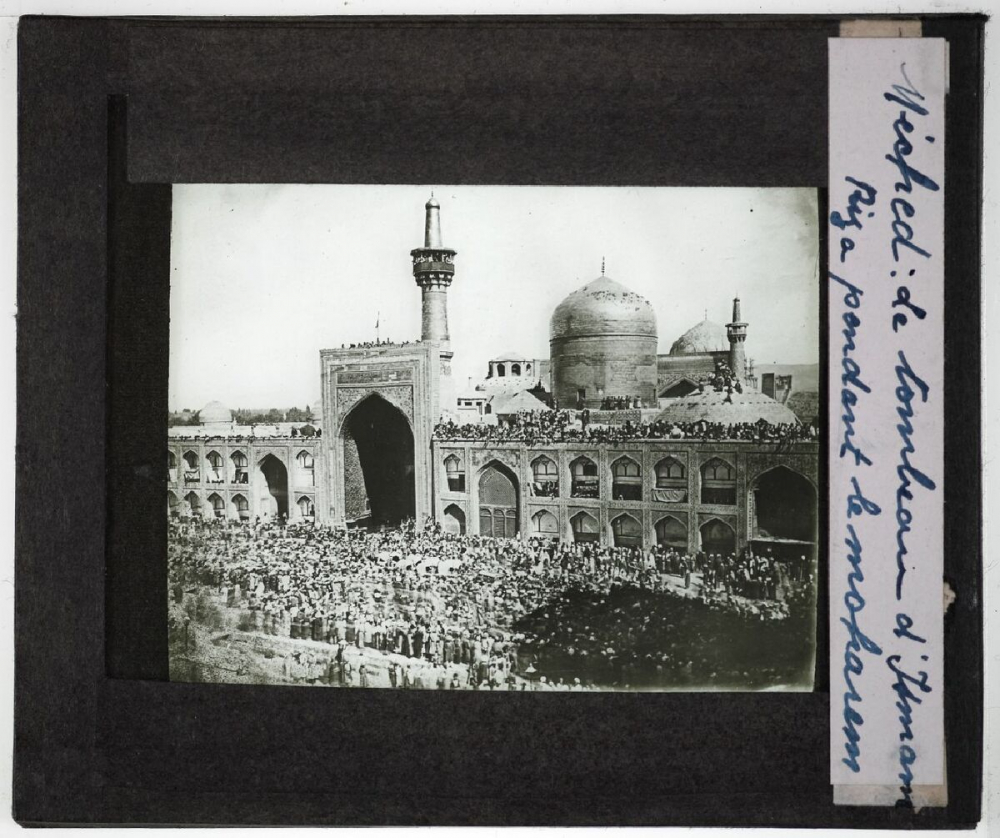 Méched: de tombeau d'Imam
Riza pendant le moharem